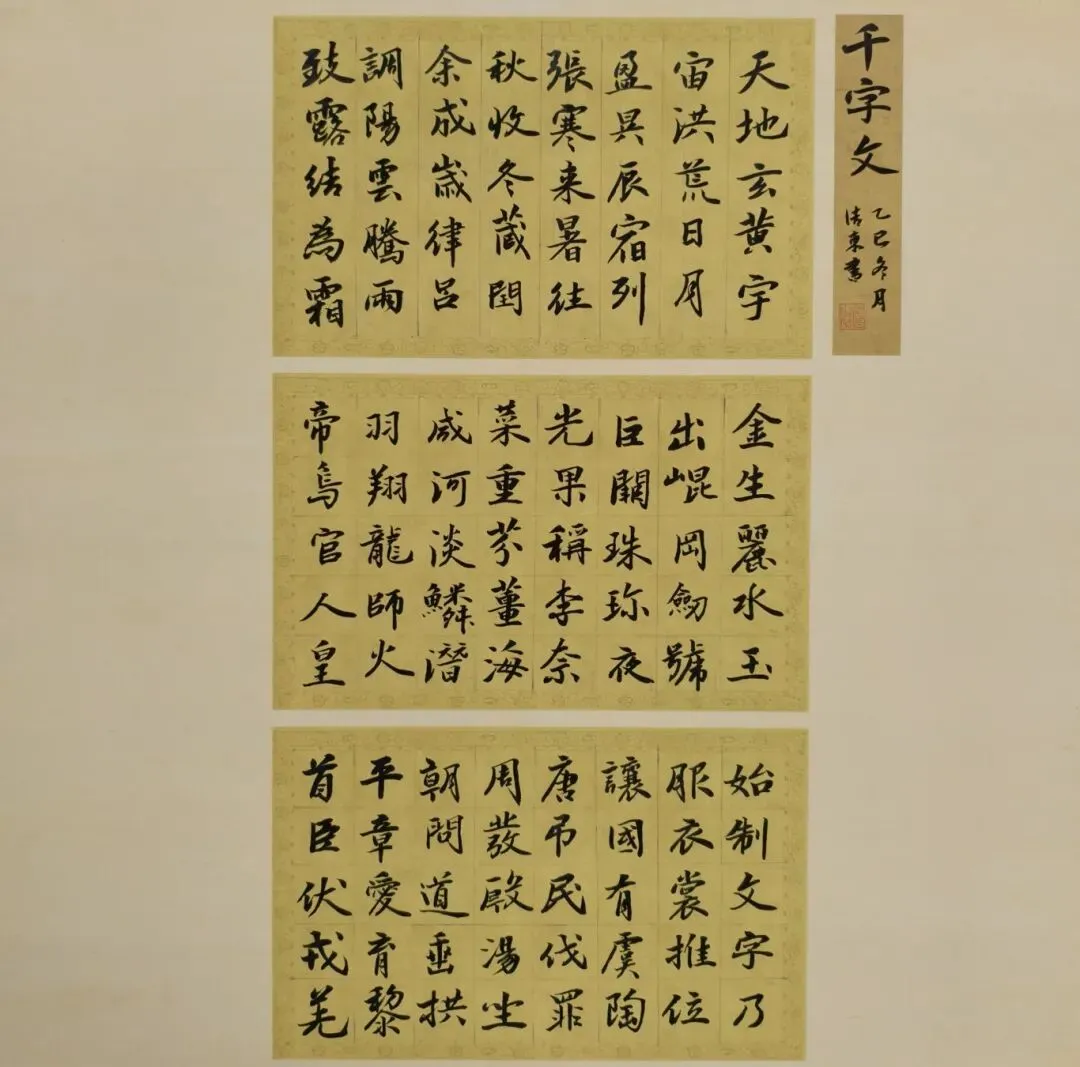 千字文
乙巳冬月
東書
天地玄黃宇
宙洪荒日月
盈昃辰宿列
張寒来暑往
秋收冬藏閏
余成歲律呂
調陽雲騰雨
致露結為霜
金生麗水玉
出崐岡劔號
巨闕珠珎夜
光果稱李奈
菜重芥薑海
咸河淡鱗潛
羽翔龍師火
帝鳥官人皇
始制文字乃
服衣裳推位
讓國有虞陶
唐吊民伐罪
周發殷湯坐
朝問道垂拱
平章愛育黎
首臣伏戎羌